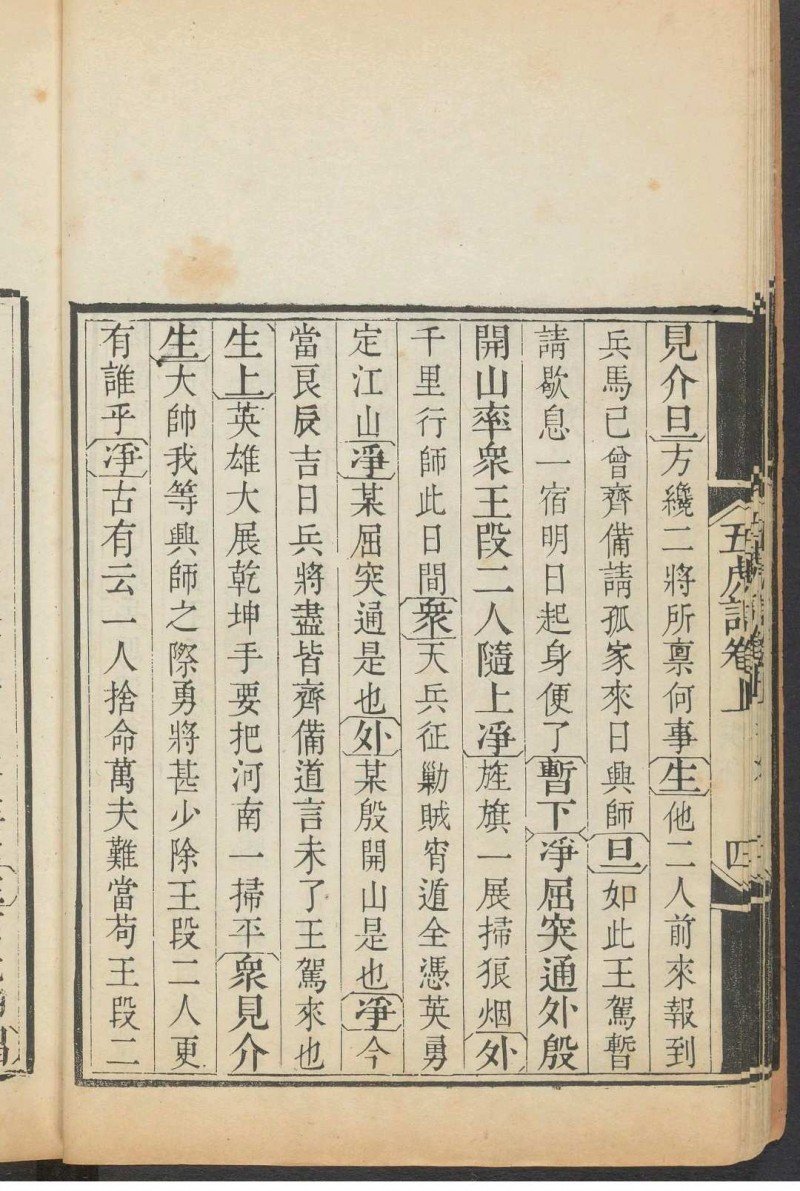 五虎記卷上
四
見介旦方纔二將所禀何事生他二人前來報到
兵馬已曾齊備請孤家來日興師旦如此王駕暫
請歇息一宿明日起身便了暫下凈屈突通外殷
開山率衆王段二人隨上凈旌旗一展掃狼烟外
千里行師此日間衆天兵征勦賊宵遁全憑英勇
定江山凈某屈突通是也外某殷開山是也凈今
當良辰吉日兵將盡皆齊備道言未了王駕來也
生上英雄大展乾坤手要把河南一掃平衆見介
生大帥我等興師之際勇將甚少除王段二人更
有誰乎凈古有云一人捨命萬夫難當苟王段二